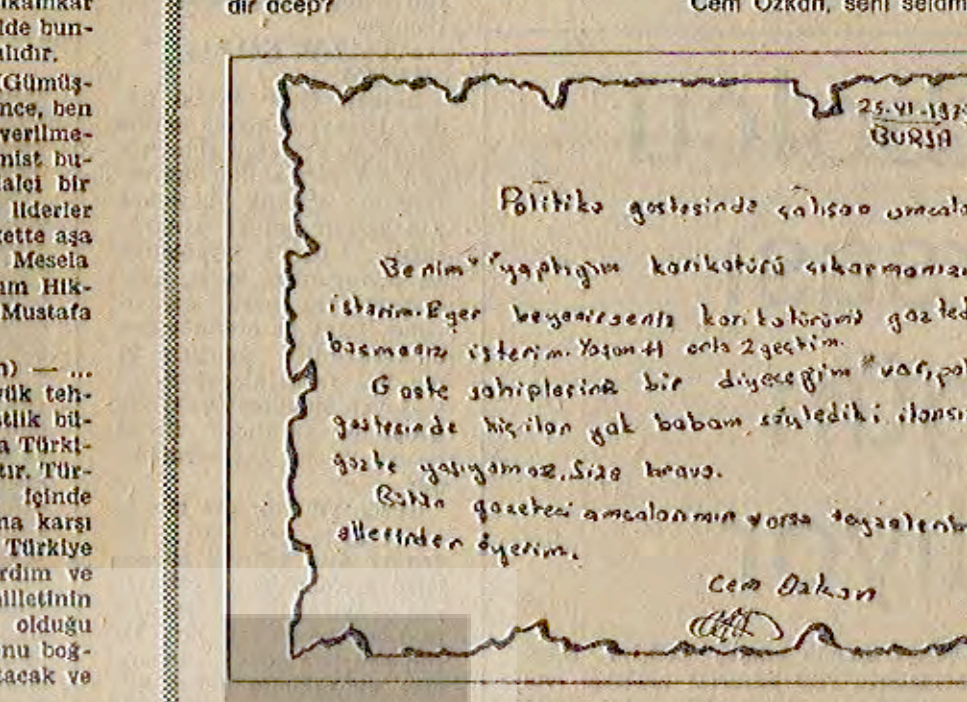 ikamkar
lde bun-
alıdır.
(Gümüş-
nce, ben
verilme-
nist bu-
alçi bir
liderler
kette aşa
Mesela
ım Hik-
Mustafa
n) — ...
yük teh-
stlik bü-
a Türki-
tır. Tür-
içinde
na karşı
Türkiye
rdım ve
nilletinin
olduğu
nu boğ-
tacak ve
dir acep?
Cem Özkan, seni selâm
25-VI-197
BURSA
Politika gastesinde çalışan amcala
Benim yaptığım karikatürü çıkarmanızı
isterim. Eğer beyenirseniz karikatürümü gazted
basmanızı isterim. Yaşım 11 orta 2 geçtim.
Gaste sahiplerine bir diyeceğim var, pol
gastesinde hiç ilan yok babam söyledi ki ilansı
gazte yaşıyamaz. Size bravo.
Bütün gazeteci amcalarımın varsa teyzelerin
ellerinden öperim.
Cem Özkan